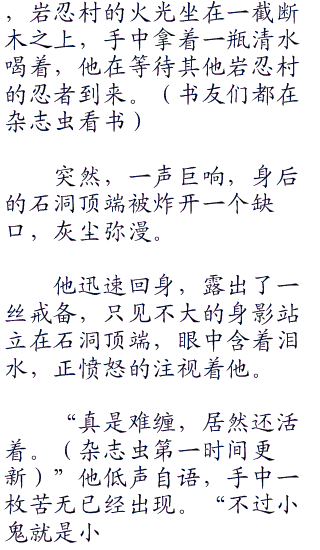 ，岩忍村的火光坐在一截断
木之上，手中拿着一瓶清水
喝着，他在等待其他岩忍村
的忍者到来。（书友们都在
杂志虫看书）
突然，一声巨响，身后
的石洞顶端被炸开一个缺
口，灰尘弥漫。
他迅速回身，露出了一
丝戒备，只见不大的身影站
立在石洞顶端，眼中含着泪
水，正愤怒的注视着他。
“真是难缠，居然还活
着。（杂志虫第一时间更
新）”他低声自语，手中一
枚苦无已经出现。“不过小
鬼就是小